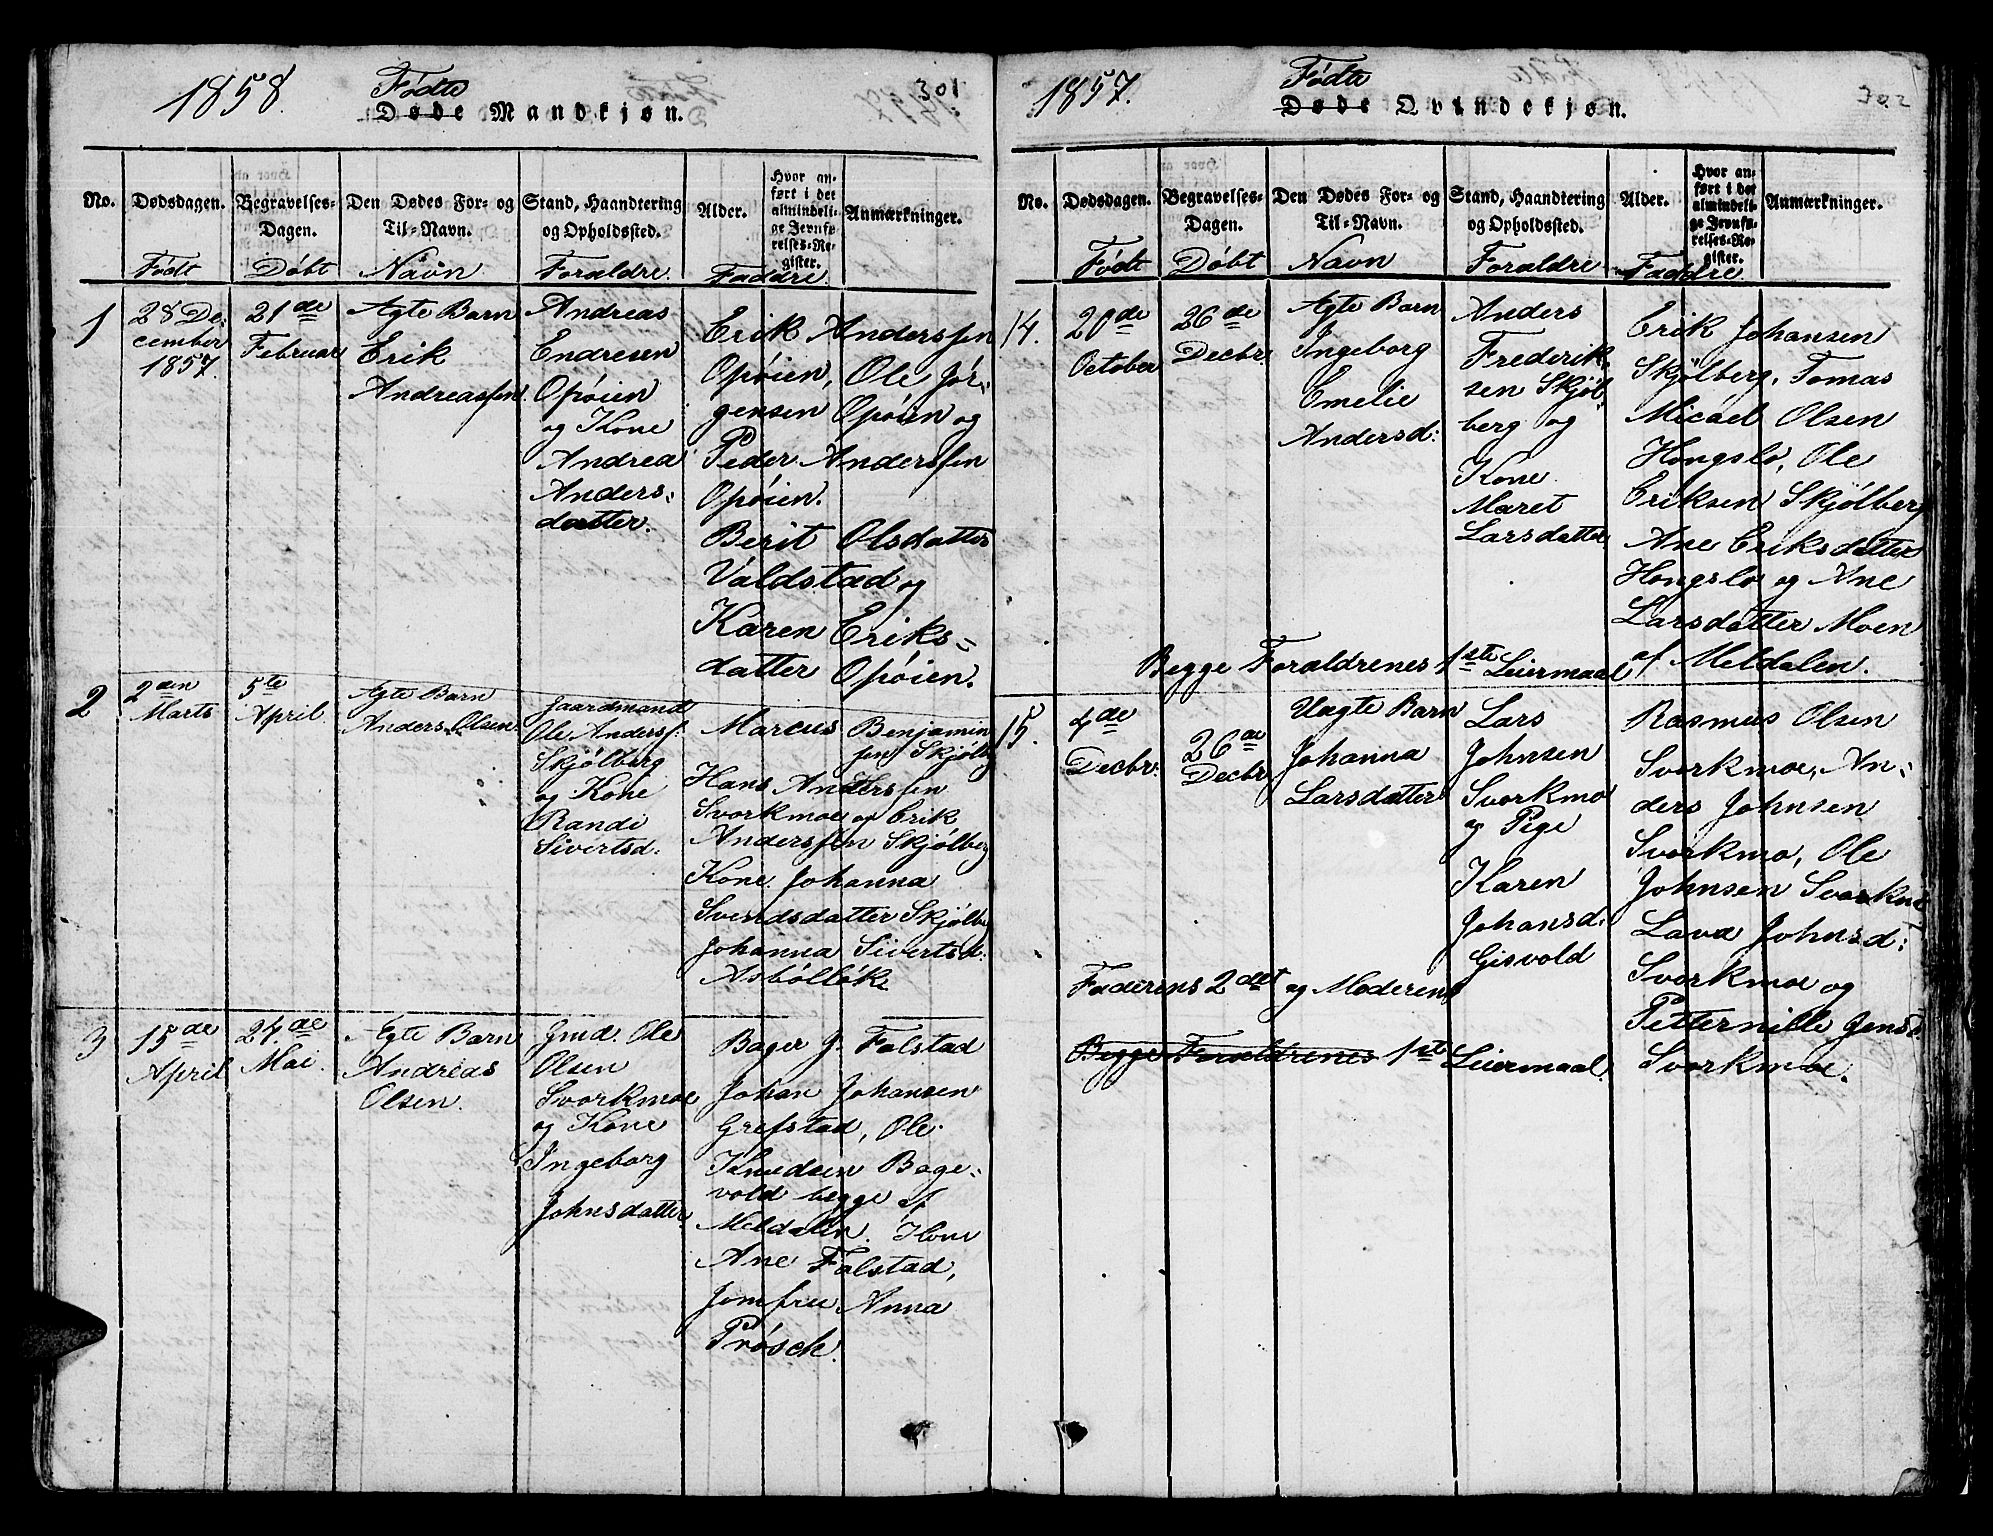 1858.
Födte
301
Døde Mandkjøn.
No.
Dødsdagen.
Begravelses-
Dagen.
Den Dødes For- og
Til-Navn.
Stand, Haandtering
og Opholdssted.
Alder.
Hvor an-
ført i det
almindeli-
ge Jevnfø-
relses-Re-
gister.
Anmærkninger.
Födt
Döbt
Navn
Forældre.
Faddre.
1
28 De-
cember
1857.
21de
Februar
Ægte Barn
Erik
Andreassen.
Andreas
Endresen
Opöien
og Kone
Andrea
Anders-
datter.
Erik Anderssen
Opöien, Ole Jör-
gensen Opöien og
Peder Anderssen
Opöien.
Berit Olsdatter
Valdstad og
Karen Eriks-
datter Opöien.
2
2den
Marts
5te
April
Ægte Barn
Anders Olsen
Gaardmand
Ole Anderss:
Skjölberg
og Kone
Randi
Sivertsd:
Marcus Benjamin
sen Skjölberg
Hans Anderssen
Svorkmoe og Erik
Anderssen Skjölberg
Kone Johanna
Svendsdatter Skjölberg
Johanna Sivertsd:
Asböllök
3
15de
April
24.de
Mai.
Ægte Barn
Andreas
Olsen.
Gmd. Ole
Olsen
Svorkmoe
og Kone
Ingeborg
Johnsdatter
Bager J. Falstad
Johan Johansen
Grefstad, Ole
Knudsen Bage-
vold begge af
Meldalen. Kone
Ane Falstad,
Jomfru Anna
Prösch.
1857.
Födte
302
Døde Qvindekjøn.
No.
Dødsdagen.
Begravelses-
Dagen.
Den Dødes For- og
Til-Navn.
Stand, Haandtering
og Opholdssted.
Alder.
Hvor an-
ført i det
almindeli-
ge Jevnfø-
relses-Re-
gister.
Anmærkninger.
Födt
Döbt
Navn
Forældre
Faddre.
14.
20de
October
26de
Decbr.
Ægte Barn
Ingeborg
Emelie
Andersd:
Anders
Frederik-
sen Skjöl-
berg og
Kone
Maret
Larsdatter
Erik Johansen
Skjölberg, Tomas
Micael Olsen
Hongslo, Ole
Eriksen Skjölberg
Ane Eriksdatter
Hongslo og Ane
Larsdatter Moen
af Meldalen.
Begge Forældrenes 1ste Leiermaal
15.
4de
Decbr:
26de
Decbr
Uægte Barn
Johanna
Larsdatter
Lars
Johnsen
Svorkmo
og Pige
Karen
Johansd:
Gisvold
Rasmus Olsen
Svorkmoe, An-
ders Johnsen
Svorkmo, Ole
Johnsen Svorkmo
Lava Johnsd:
Svorkmoe og
Petternille Jensd.
Svorkmoe.
Faderens 2det og Moderens
Begge Forældrenes 1ste Leiermaal.